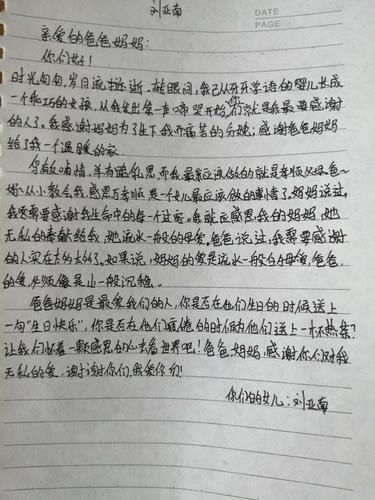 刘亚南
DATE
PAGE
亲爱的爸爸妈妈:
你们好!
时光匆匆,岁月流逝。转眼间,我已从牙牙学语的婴儿长成
一个乖巧的女孩,从我发出第一声啼哭开始,你们就是我最要感谢
的人了。我感谢妈妈为了生下我而痛苦的分娩;感谢爸爸妈妈
给了我一个温暖的家。
乌鸦哺情,羊有跪乳恩,而我最应该做的就是孝顺父母。爸~
妈从小教会我,感恩与孝顺是一个儿女最应该做的事情了。妈妈说过,
我还需要感谢我生命中的每一个过客。我就应感恩我的妈妈,她
无私的奉献给我,她流水一般的母爱。爸爸说过,我需要感谢
的人实在太多太多了。如果说,妈妈的爱是流水一般的母爱,爸爸
的爱,必须像是山一般沉稳。
爸爸妈妈是最爱我们的人,你是否在他们生日的时候送上
一句“生日快乐”,你是否在他们疲倦的时候为他们送上一杯热茶?
让我们怀着一颗感恩的心去看世界吧!爸爸,妈妈,感谢你们对我
无私的爱。谢谢你们,我爱你们!
你们的女儿:刘亚南